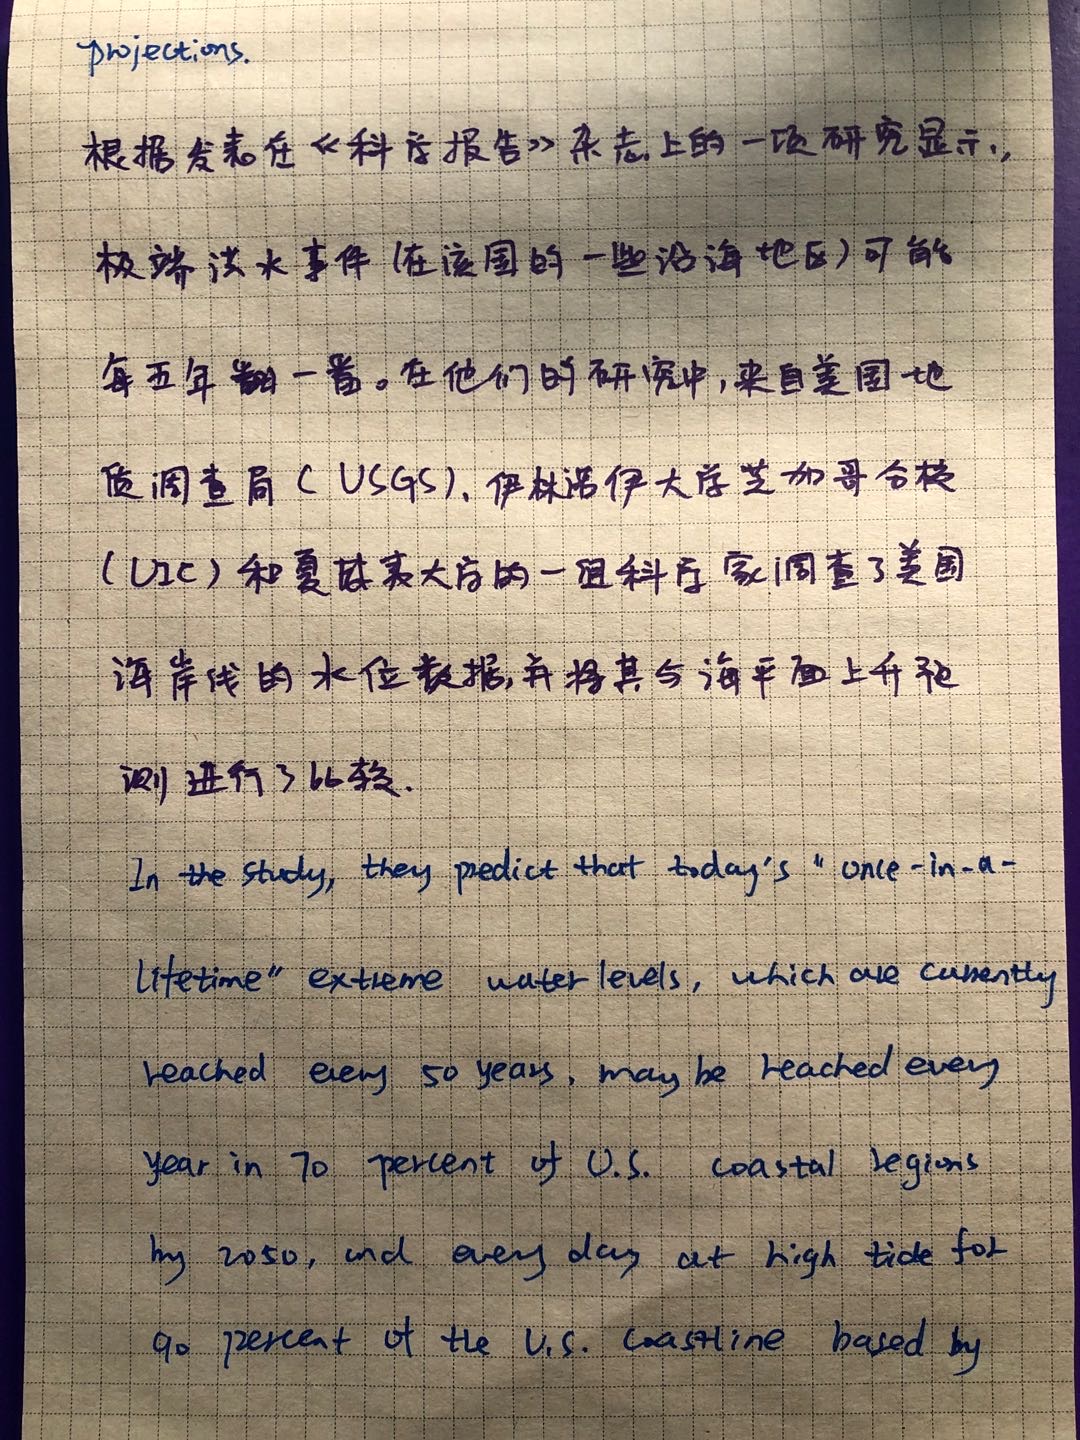 projections.
根据发表在《科学报告》杂志上的一项研究显示,
极端洪水事件(在该国的一些沿海地区)可能
每五年翻一番。在他们的研究中,来自美国地
质调查局(USGS)、伊林诺伊大学芝加哥分校
(UIC)和夏威夷大学的一组科学家调查了美国
海岸线的水位数据,并将其与海平面上升预
测进行了比较.
In the study, they predict that today's "once-in-a-
lifetime" extreme water levels, which are currently
reached every 50 years, may be reached every
year in 70 percent of U.S. coastal regions
by 2050, and every day at high tide for
90 percent of the U.S. coastline based by